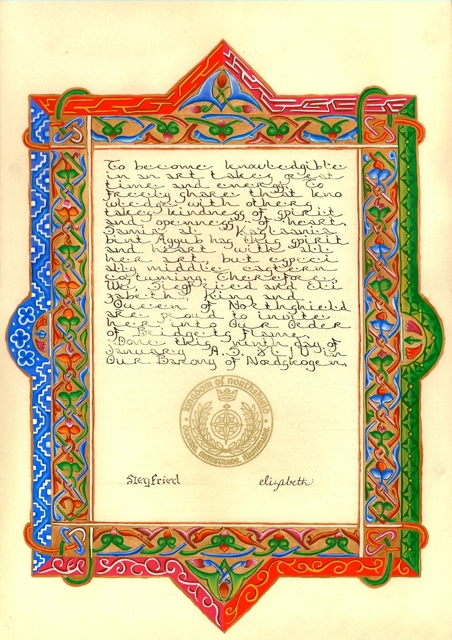 To become knowledgible
in an art takes great
time and energy. To
freely share that kno
wledge with others
takes kindness of spirit
and openness of heart.
Samira al-
bint Ayyub has this spirit
and heart with all
her art, but especi
ally middle eastern
costuming. Therefore,
We, Siegfried and Eli
zabeth, King and
Queen of Northshield
are proud to invite
her into Our Order
of Bridget's Flame.
Done this ninth day of
January A.S. in
Our Barony of Nordskogen.
Kingdom of Northshield
Siegfried
elizabeth